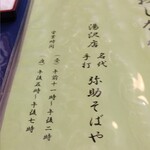 湯沢店
名代
手打
弥助そばや
営業時間
(昼)午前十一時〜午後二時
(夜)午後五時〜午後七時